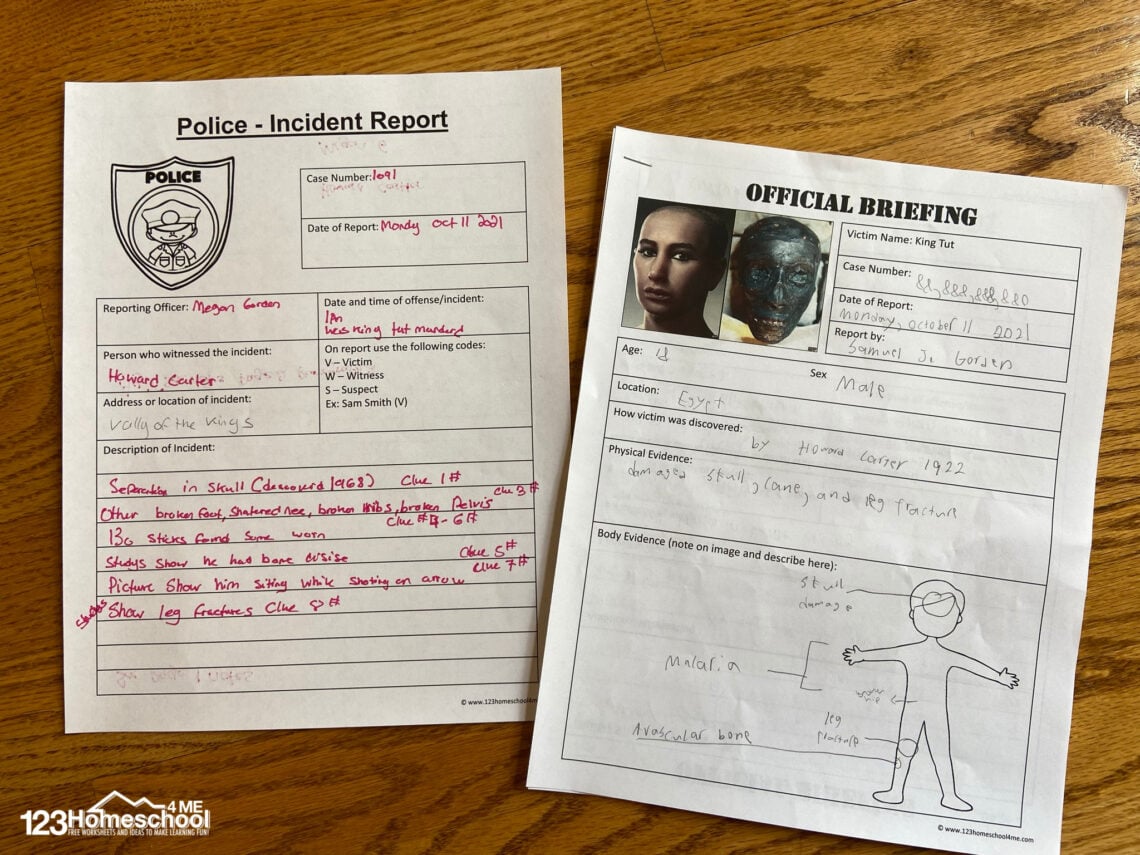 Police - Incident Report
POLICE
Case Number: 1091
Date of Report: Mondy Oct 11 2021
Reporting Officer: Megan Gorden
Date and time of offense/incident:
was King tut murderd
Person who witnessed the incident:
Howard Carter
On report use the following codes:
V – Victim
W – Witness
S – Suspect
Ex: Sam Smith (V)
Address or location of incident:
Vally of the Kings
Description of Incident:
in Skull 1968) Clue 1#
Other broken foot, broken ribs, broken Pelvis Clue 3#
Clue #4-6#
130 Sticks found Some worn
Studys Show he had bone Clue 5#
Clue 7#
Picture Show him Siting while Shoting an arrow
Show leg fractures Clue 8#
© www.123homeschool4me.com
OFFICIAL BRIEFING
Victim Name: King Tut
Case Number:
Date of Report:
Monday, October 11 2021
Report by:
Samuel J. Gorden
Age: 18
Sex Male
Location: Egypt
How victim was discovered:
by Howard Carter 1922
Physical Evidence:
damaged skull, cane, and leg fracture
Body Evidence (note on image and describe here):
skull
damage
Malaria
leg
fracture
Avascular bone
© www.123homeschool4me.com
4 ME
123Homeschool
FREE WORKSHEETS AND IDEAS TO MAKE LEARNING FUN!